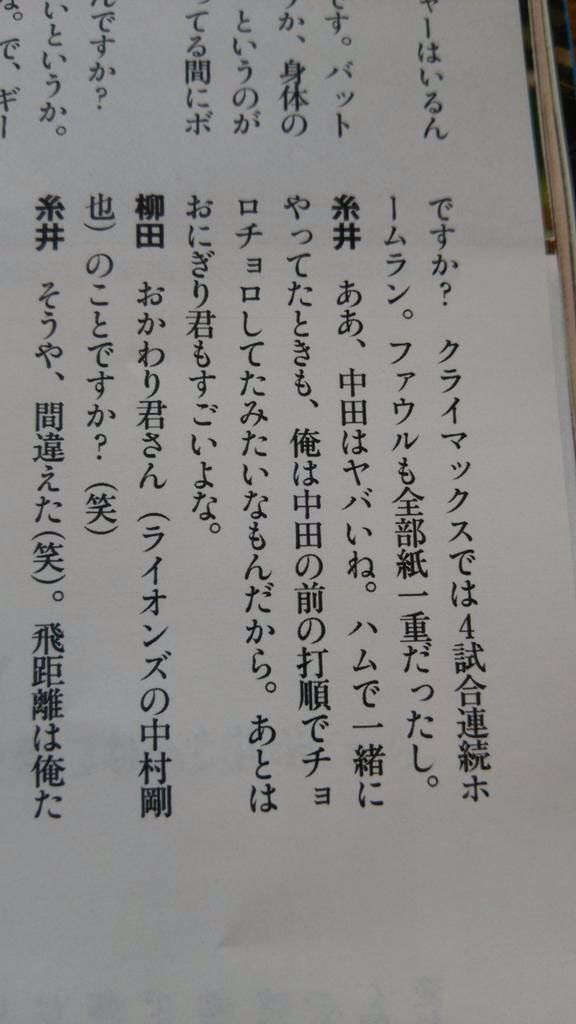 ャーはいるん
です。バット
うか、身体の
というのが
ってる間にボ
んですか?
いというか。
な。で、ギー
ですか? クライマックスでは4試合連続ホ
ームラン。ファウルも全部紙一重だったし。
糸井 ああ、中田はヤバいね。ハムで一緒に
やってたときも、俺は中田の前の打順でチョ
ロチョロしてたみたいなもんだから。あとは
おにぎり君もすごいよな。
柳田 おかわり君さん(ライオンズの中村剛
也)のことですか?(笑)
糸井 そうや、間違えた(笑)。飛距離は俺た